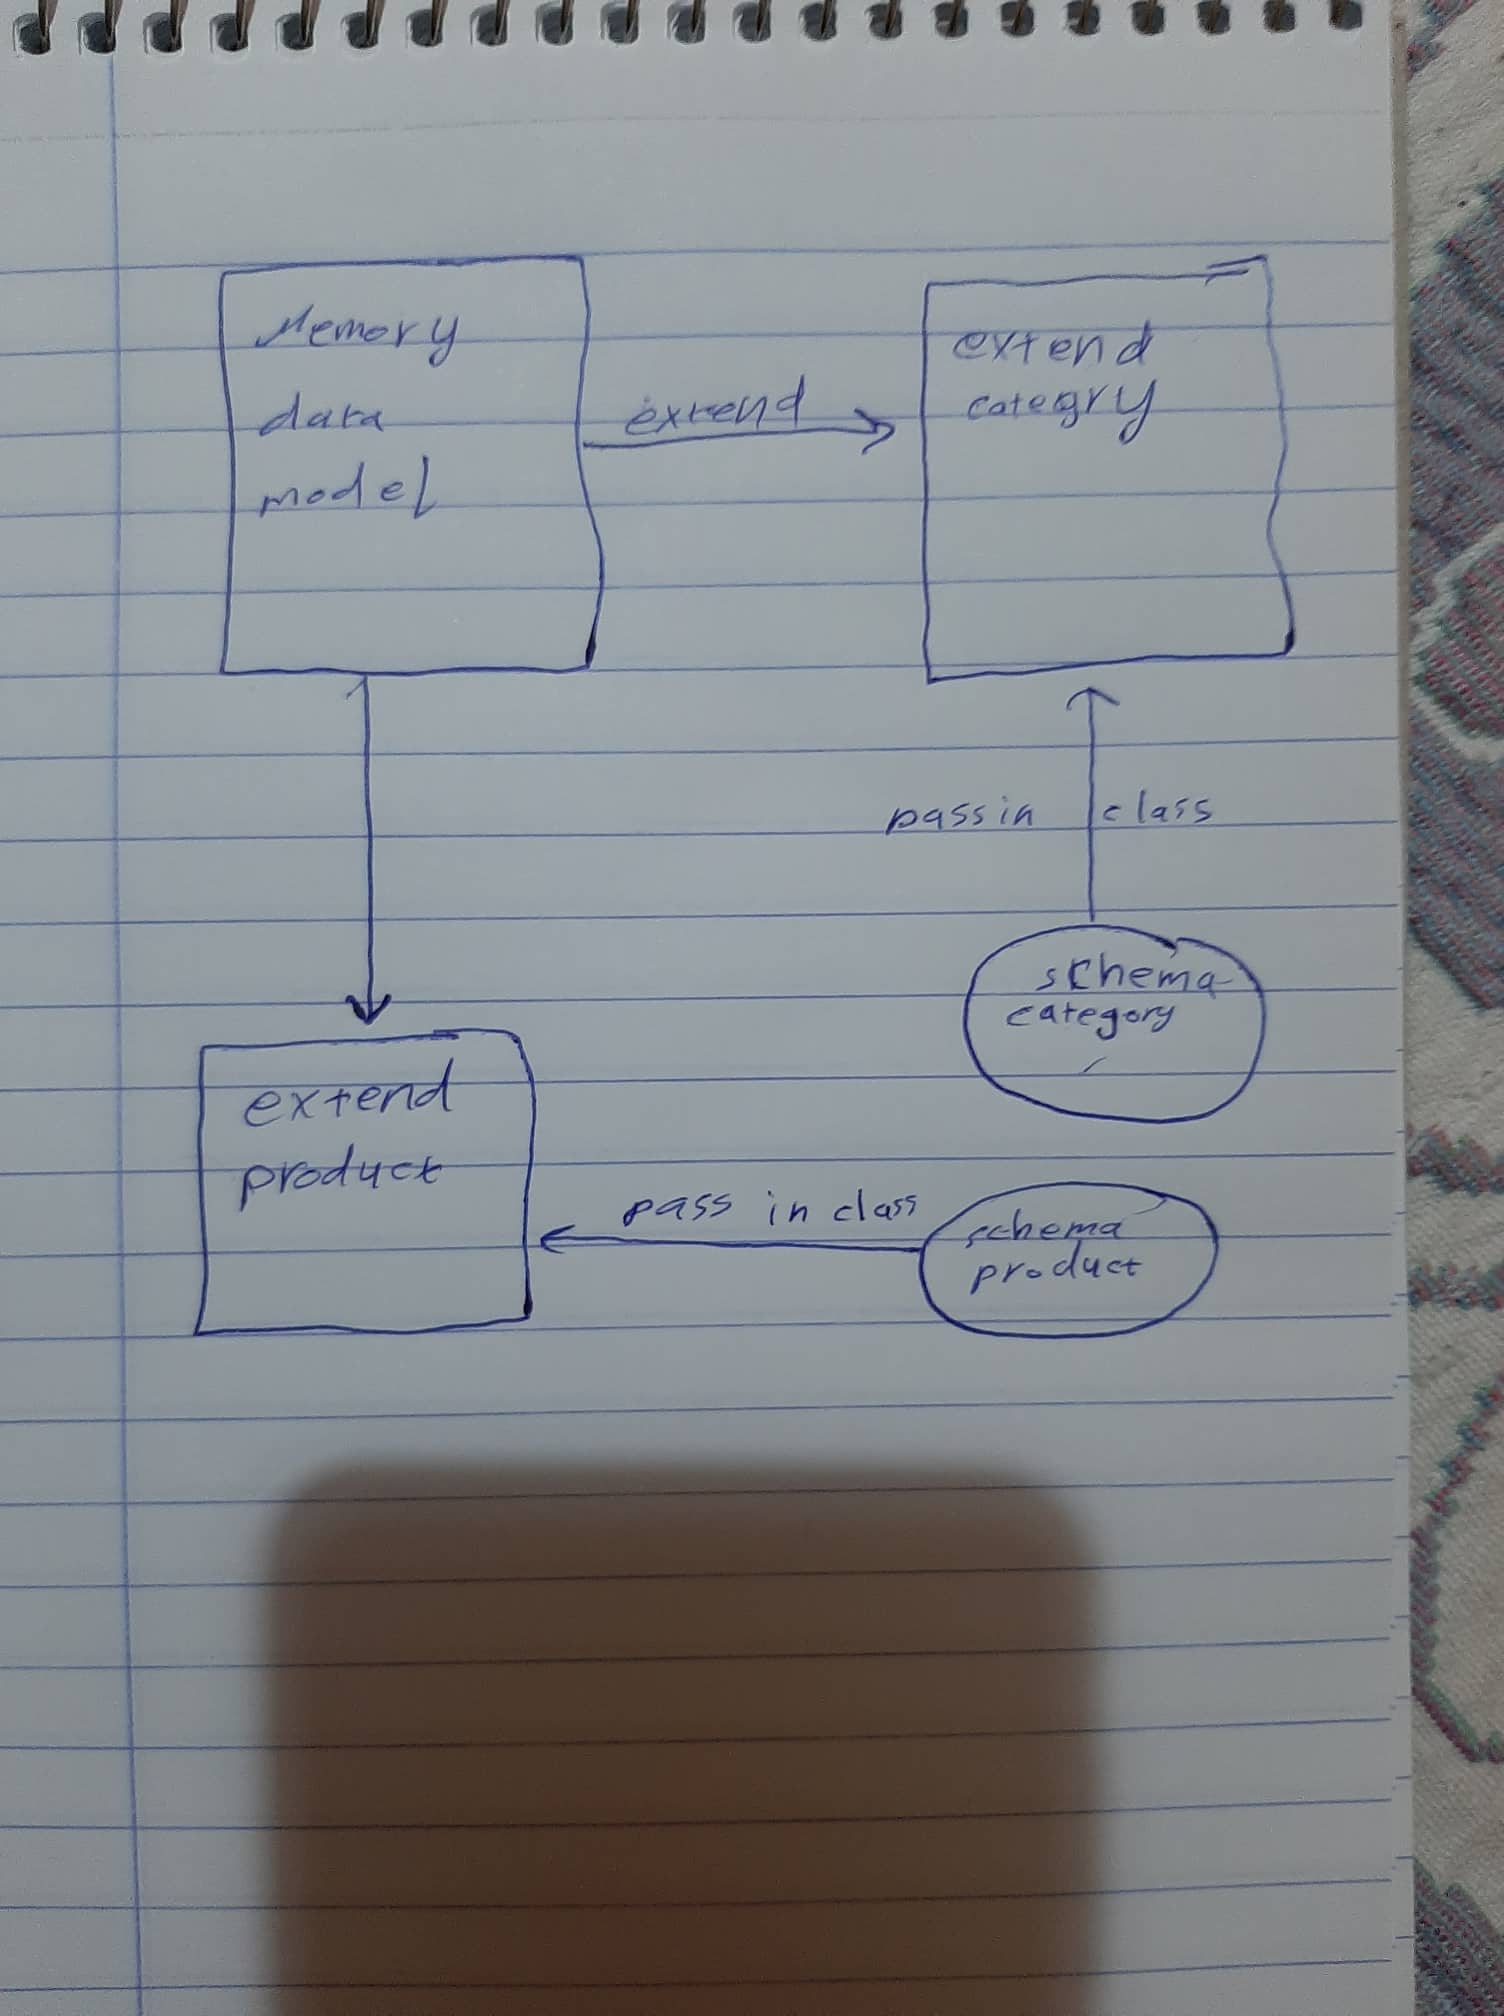 Memory
data
model
extend
extend
categry
pass in class
schema
category
extend
product
pass in class
schema
product